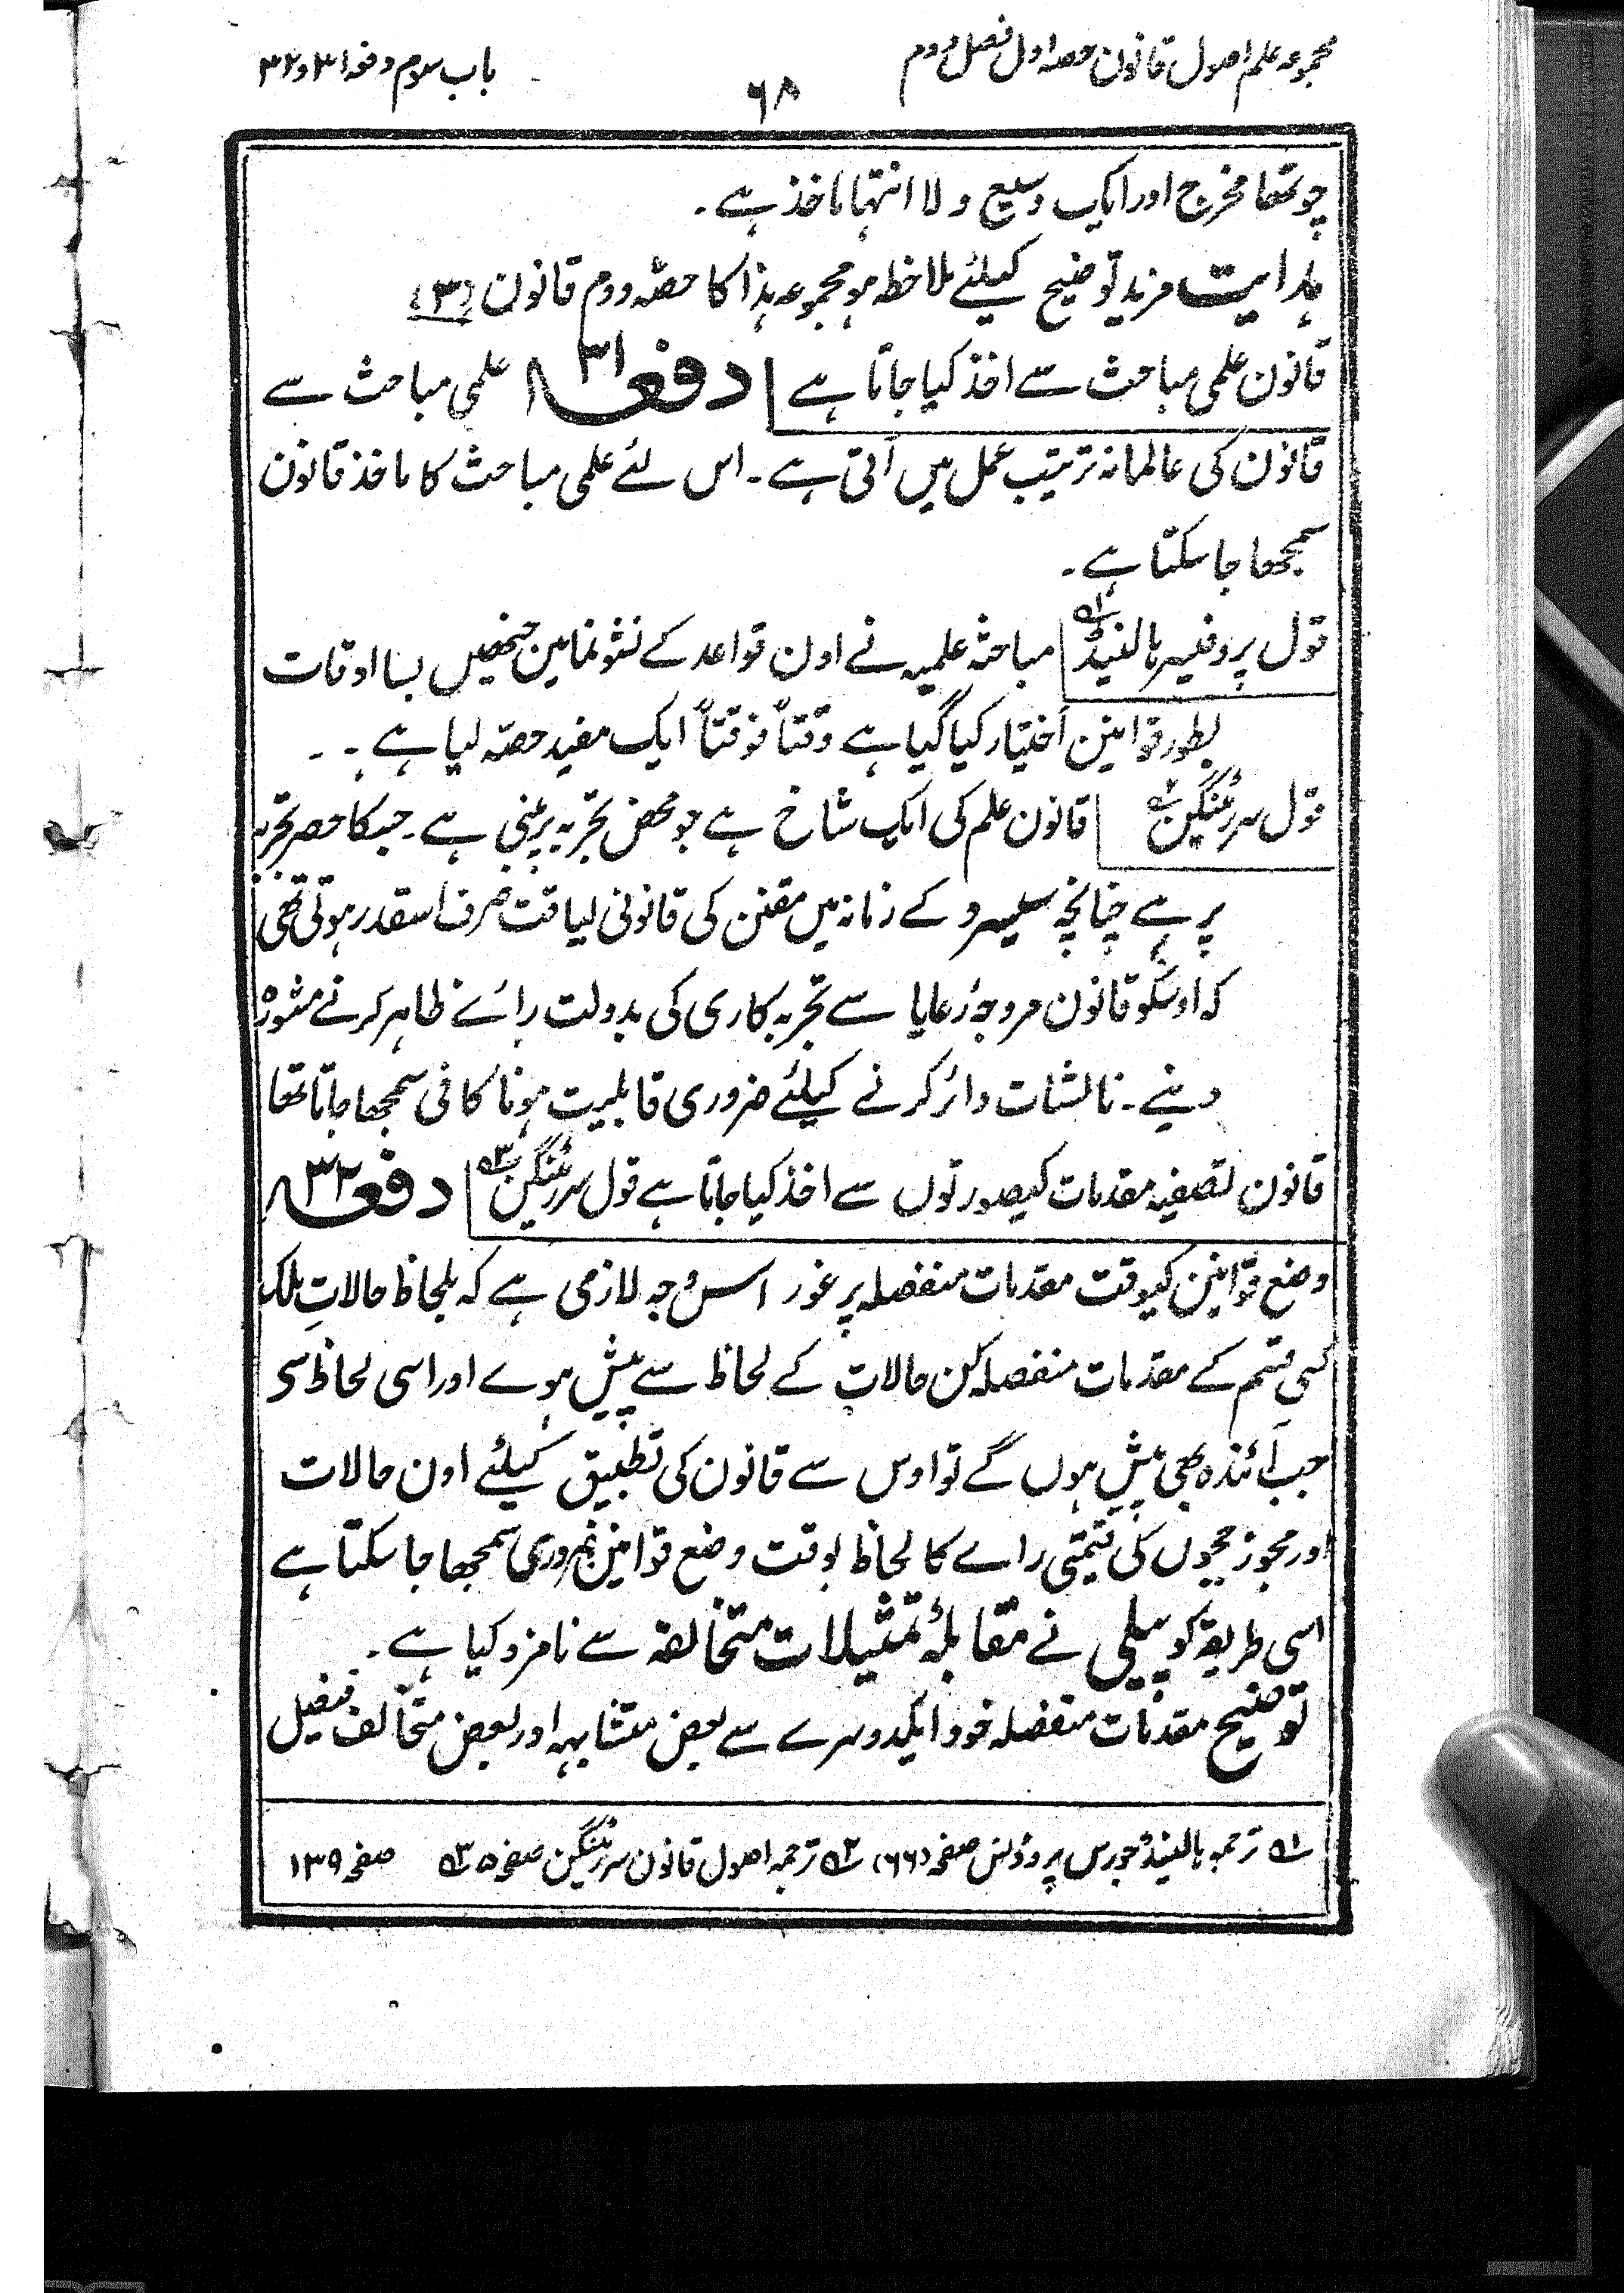 مجموعہ علم اصول قانون حصہ اول فصل دوم
۶۸
باب سوم دفعہ ۳۱ و ۳۲
چوتھا مخرج اور ایک وسیع و لا انتہا ماخذ ہے۔
ہدایت مزید توضیح کیلئے ملاحظہ ہو مجموعہ ہذا کا حصّہ دوم قانون (۳)
قانون علمی مباحث سے اخذ کیا جاتا ہے دفعہ ۳۱ علمی مباحث سے
قانون کی عالمانہ ترتیب عمل میں آتی ہے۔ اس لئے علمی مباحث کا ماخذ قانون
سمجھا جا سکتا ہے۔
قول پروفیسر ہالنیڈ ؎۱ مباحثہ علمیہ نے اون قواعد کے نشو نما مین جنھیں بسا اوقات
بطور قوانین اختیار کیا گیا ہے وقتاً فوقتاً ایک مفید حصّہ لیا ہے۔
قول سر رٹنگین ؎۲ قانون علم کی ایک شاخ ہے جو محض تجربہ پر مبنی ہے۔ جسکا حصر تجربہ
پر ہے چنانچہ سلیسرو کے زمانہ میں مقنن کی قانونی لیاقت صرف اسقدر ہوتی تھی
کہ اوسکو قانون مروجۂ رعایا سے تجربہ کاری کی بدولت رائے ظاہر کرنے مشورہ
دینے۔ نالشات دائر کرنے کیلئے ضروری قابلیت ہونا کافی سمجھا جاتا تھا
قانون تصفیہ مقدمات کیصورتوں سے اخذ کیا جاتا ہے قول سر رٹنگین ؎۳ دفعہ ۳۲
وضع قوانین کیوقت مقدمات منفصلہ پر غور اس وجہ لازمی ہے کہ بلحاظ حالاتِ ملک
کسی قسم کے مقدمات منفصلہ کن حالات کے لحاظ سے پیش ہوے اور اسی لحاظ سی
جب آئندہ بھی پیش ہوں گے تو اوس سے قانون کی تطبیق کیلئے اون حالات
اور مجوز ججوں کی قیمتی راے کا لحاظ بوقت وضع قوانین ضروری سمجھا جا سکتا ہے
اسی طریقہ کو بیلی نے مقابلۂ تمثیلات متخالفہ سے نامزد کیا ہے۔
توضیح مقدمات منفصلہ خود ایکدوسرے سے بعض متشابہہ اور بعض متخالف فیصل
؎۱ ترجمہ ہالنیڈ جورس پروڈنس صفحہ (۶۶) ؎۲ ترجمہ اصول قانون سر رٹنگین صفحہ ۵ ؎۳ صفحہ ۱۳۹